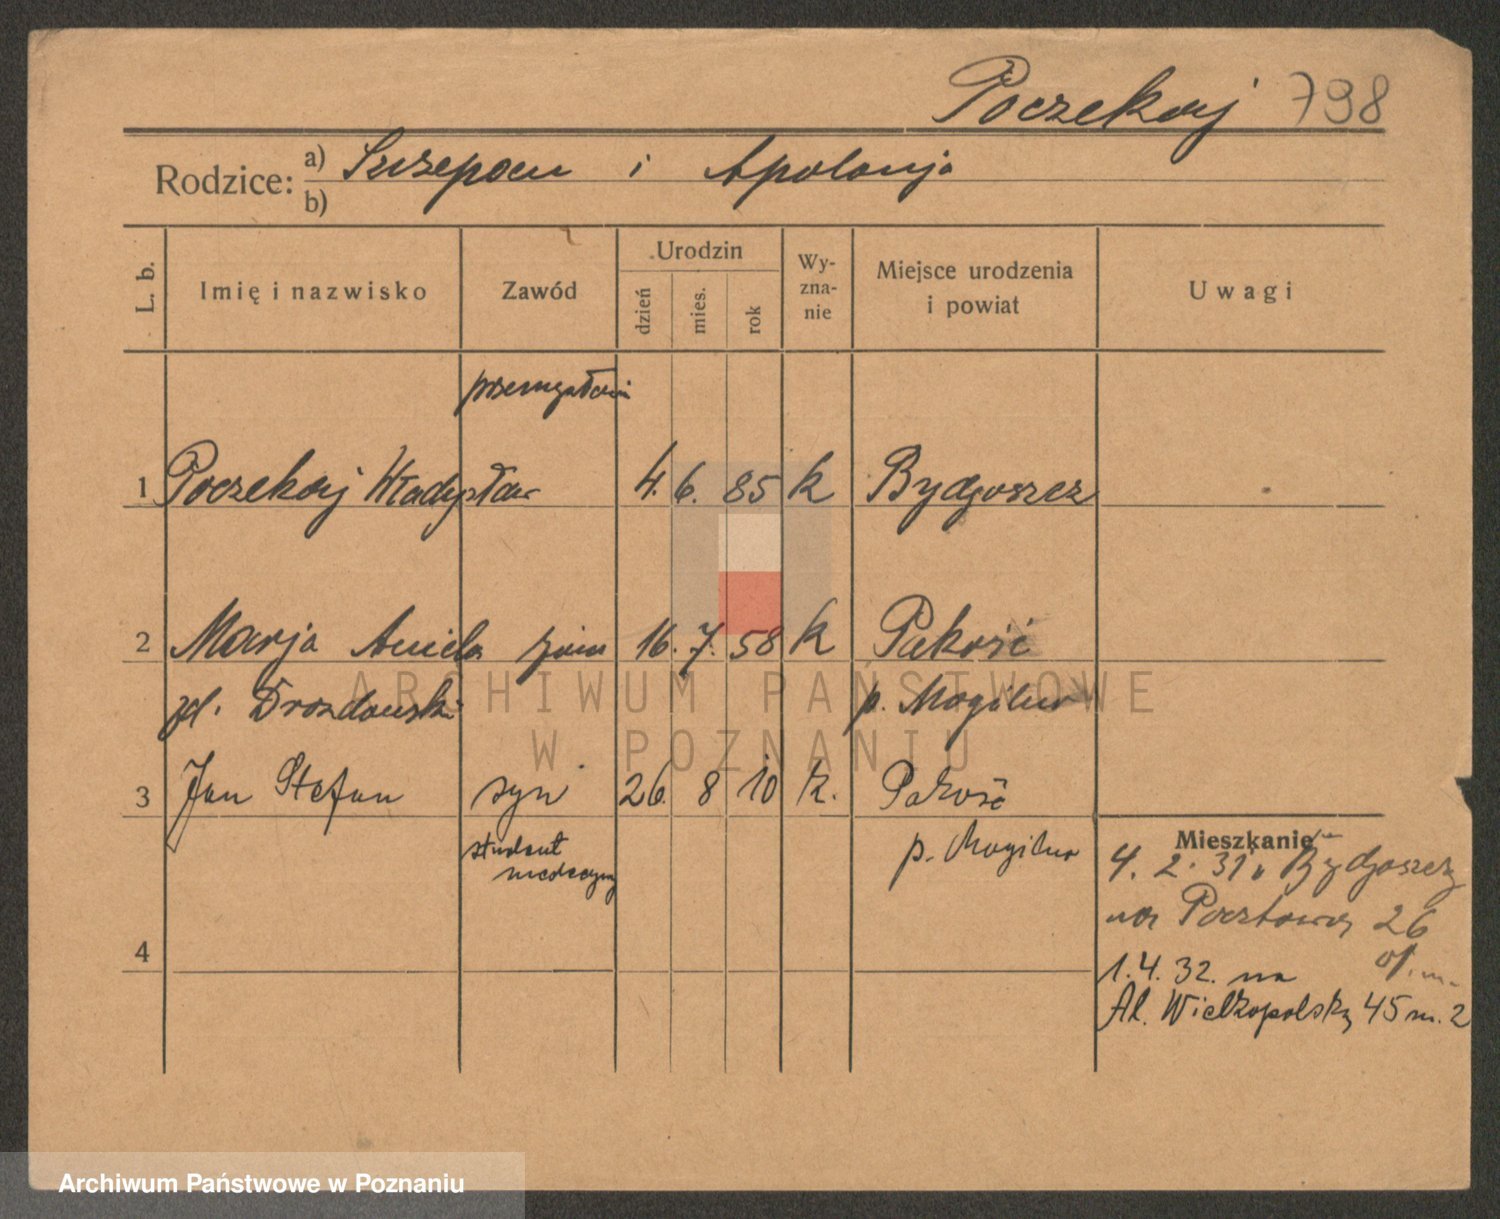 Poczekaj 798
Rodzice: a) Szczepan i Apolonja
b)
L. b.
Imię i nazwisko
Zawód
Urodzin
dzień
mies.
rok
Wy-
zna-
nie
Miejsce urodzenia
i powiat
Uwagi
1 Poczekaj Władysław 4. 6. 85 k Bydgoszcz
2 Marja Aniela żona 16. 7. 58 k Pakość
zd. Drozdowski p. Mogilno
3 Jan Stefan syn 26. 8 10 k. Pakość
student p. Mogilno
medycyny
Mieszkanie
4. 2. 31 Bydgoszcz
na Pocztowa 26
4
1.4.32. na
Al. Wielkopolską 45 m. 2
ARCHIWUM PAŃSTWOWE
W POZNANIU
Archiwum Państwowe w Poznaniu